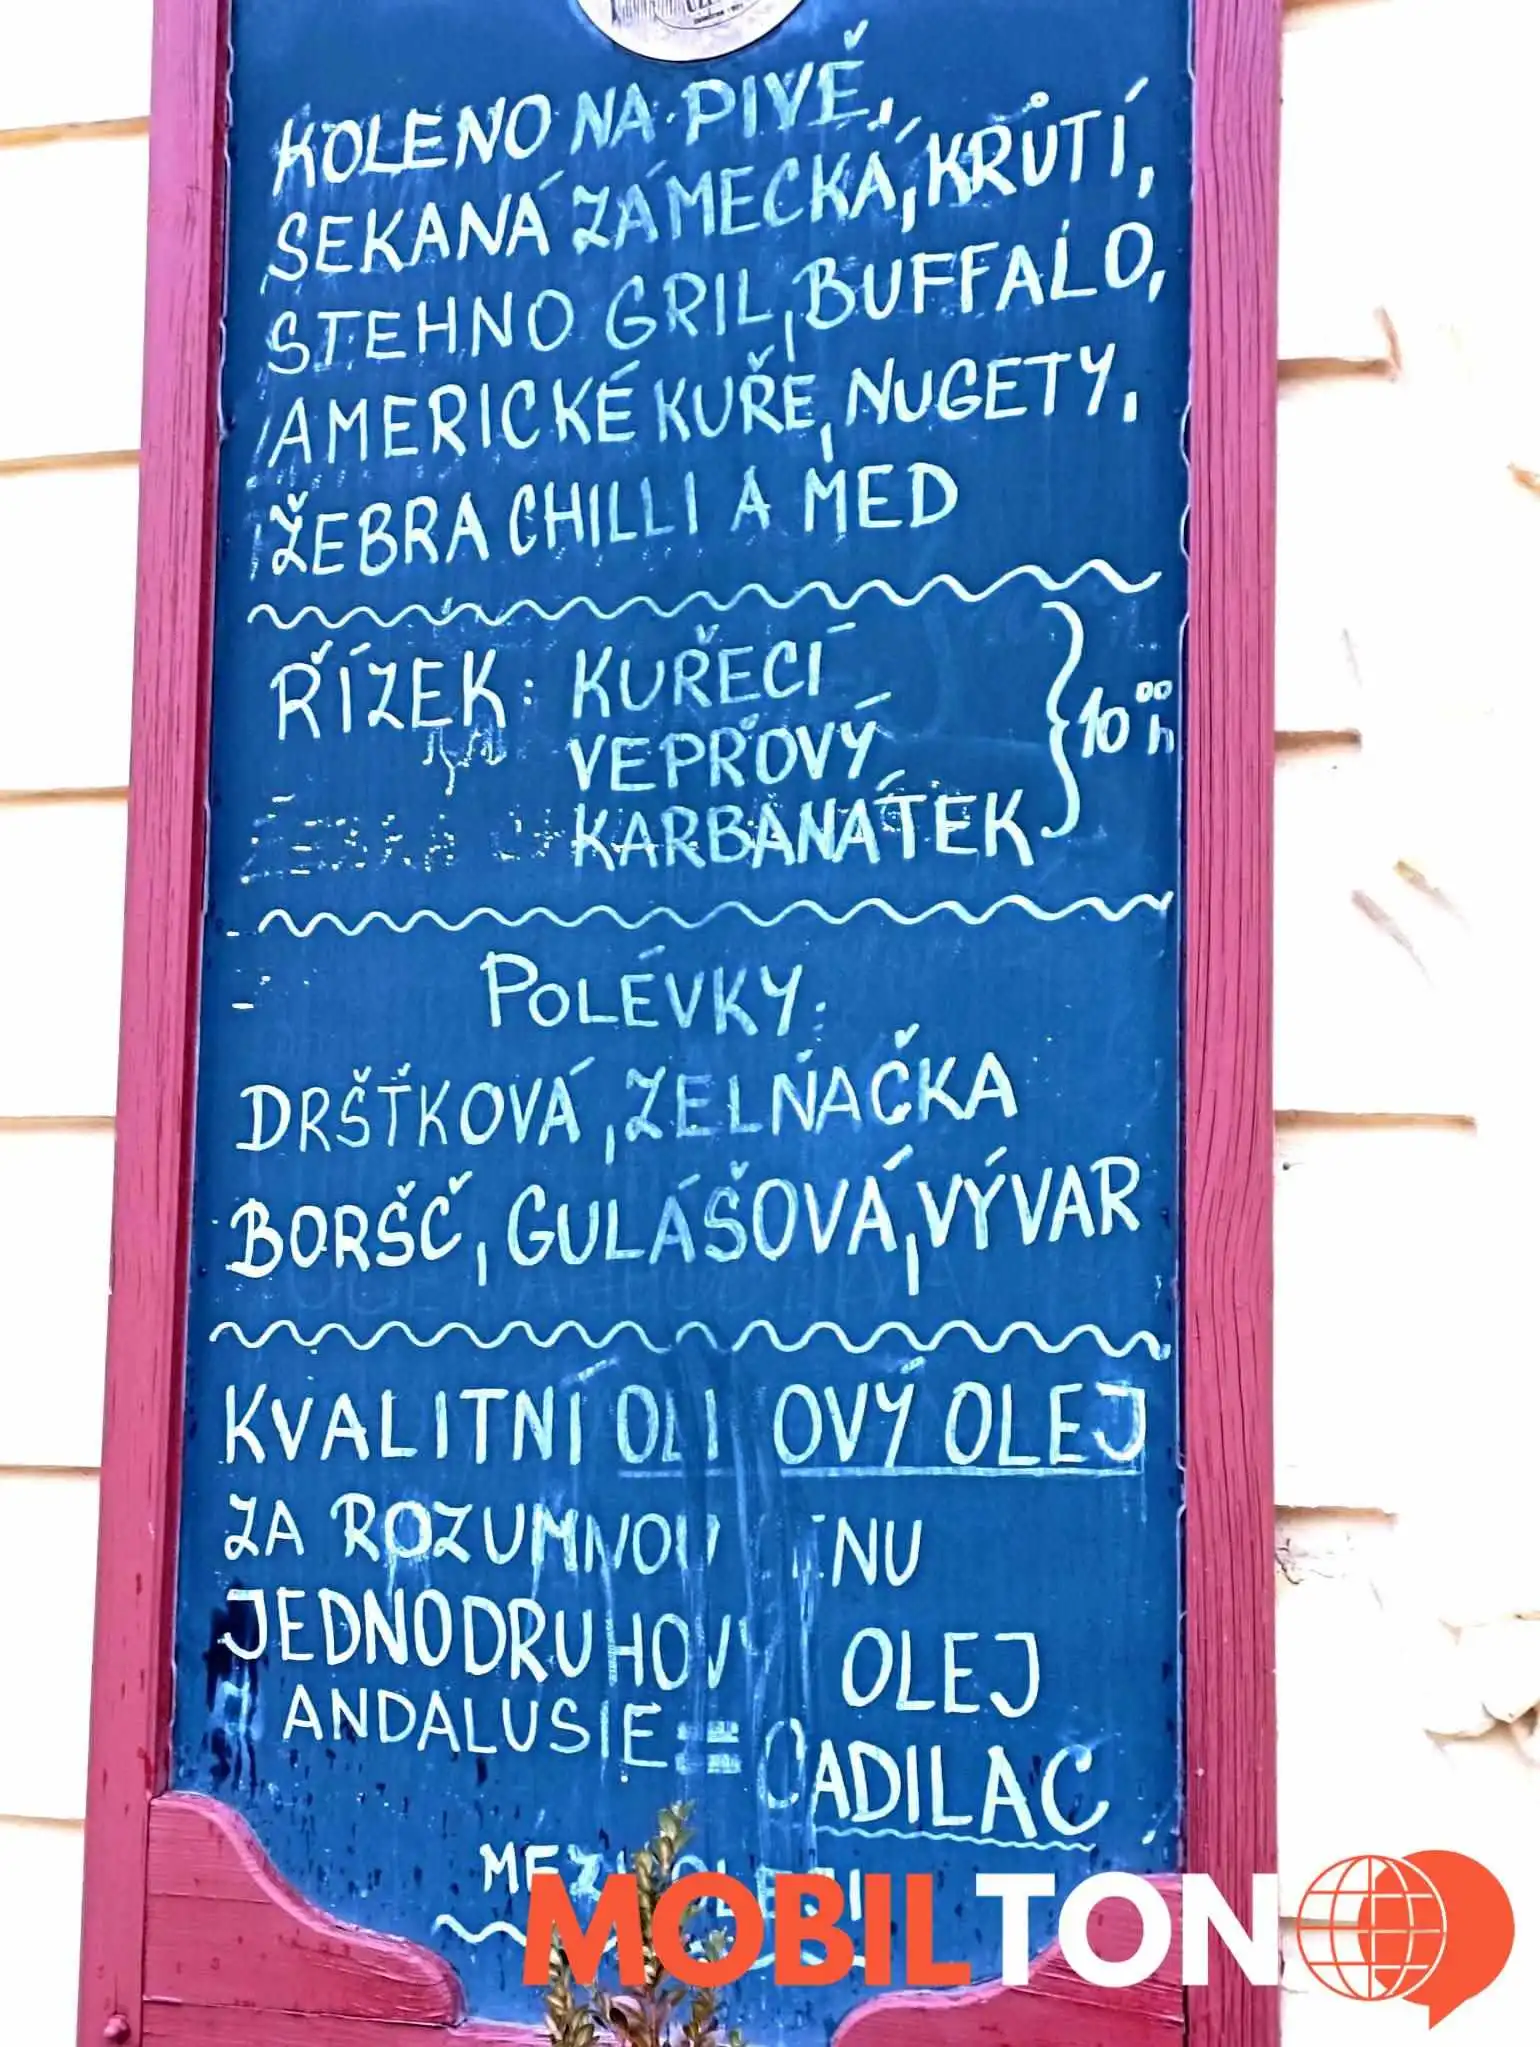 KOLENO NA PIVĚ,
SEKANÁ ZÁMECKÁ, KRŮTÍ,
STEHNO GRIL, BUFFALO,
AMERICKÉ KUŘE, NUGETY,
ŽEBRA CHILLI A MED
ŘÍZEK: KUŘECÍ
VEPŘOVÝ
KARBANÁTEK
10 00 h
POLÉVKY:
DRŠŤKOVÁ, ZELŇAČKA
BORŠČ, GULÁŠOVÁ, VÝVAR
KVALITNÍ OLI OVÝ OLEJ
ZA ROZUMNOU NU
JEDNODRUHOV OLEJ
ANDALUSIE = CADILAC
MOBILTON